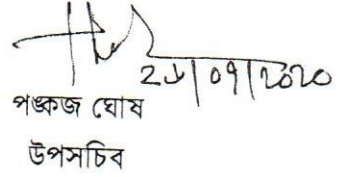 /09/2020
পঙ্কজ ঘোষ
উপসচিব